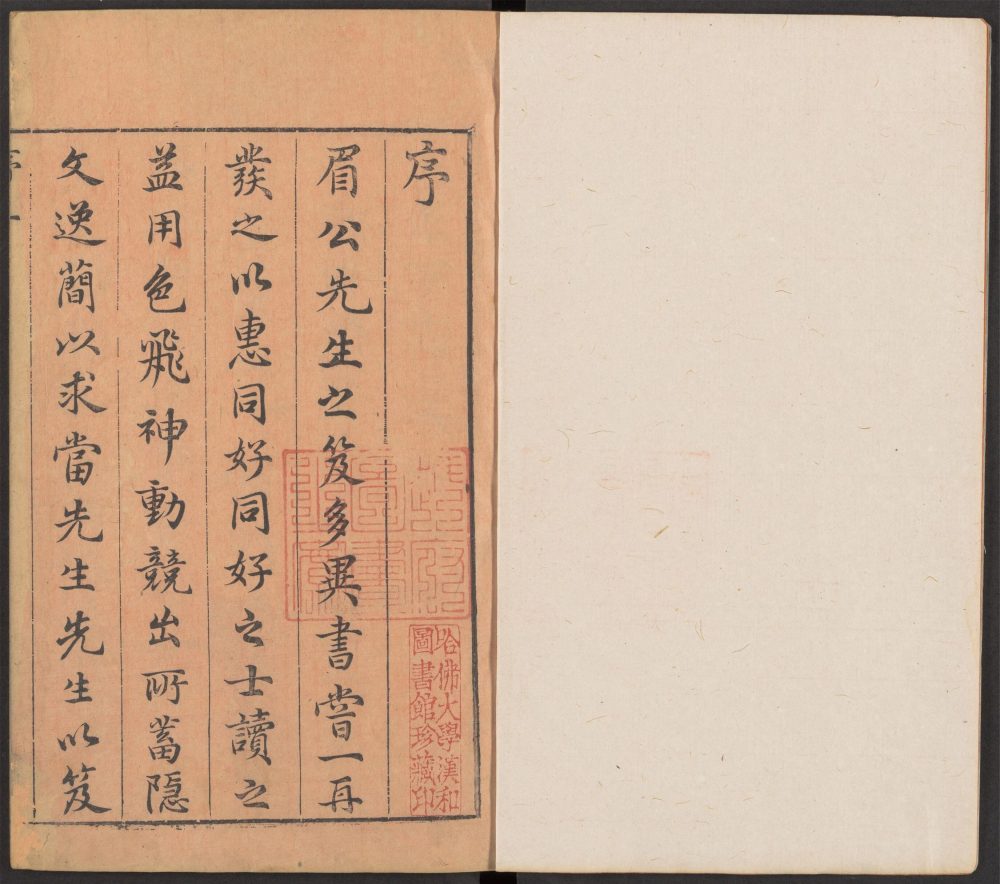 序
眉公先生之笈多異書嘗一再
發之以惠同好同好之士讀之
益用色飛神動競出所蓄隱
文逸簡以求當先生先生以笈
哈佛大學漢和
圖書館珍藏印
序 一